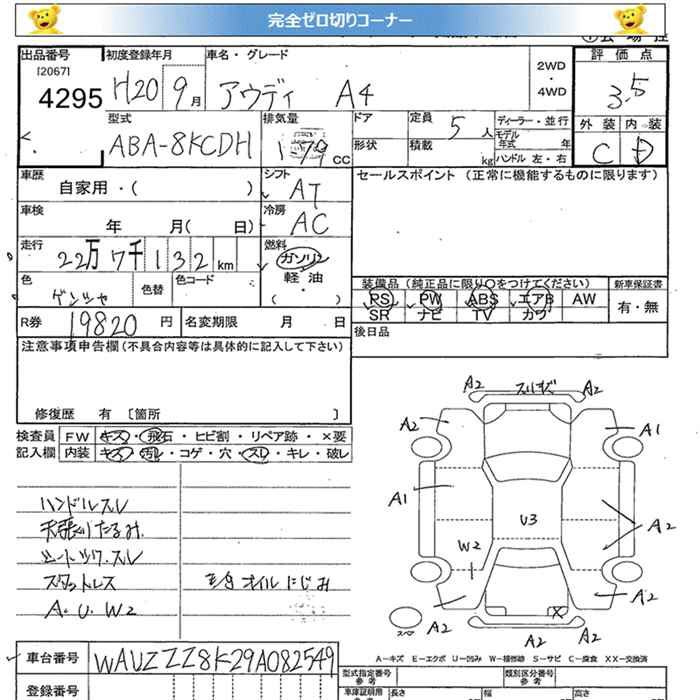 完全ゼロ切りコーナー
出品番号 初度登録年月 車名・グレード 2WD・4WD 評価点
[2067]
4295 H20 9月 アウディ A4 3.5
型式 排気量 ドア 定員 5人 ディーラー・並行 外装 内装
ABA-8KCDH 1.79 CC 形状 積載 kg モデル年式 年 C D
ハンドル 左・右
車歴 シフト セールスポイント (正常に機能するものに限ります)
自家用・( ) AT
車検 冷房
年 月( 日) AC
走行 燃料
22万7千132km ガソリン
軽油
・
( )
色 色替 色コード 装備品 (純正品に限り○をつけてください) 新車保証書
PS PW ABS エアB AW 有・無
SR ナビ TV カワ
R券 19820円 名変期限 月 日 後日品
注意事項申告欄(不具合内容等は具体的に記入して下さい)
修復歴 有 [箇所 ]
検査員 FW キズ・飛石・ヒビ割・リペア跡・×要
記入欄 内装 キズ・汚レ・コゲ・穴・スレ・キレ・破レ
ハンドルスレ
天張りたるみ
シートツヤ.スレ
スタットレス
オイルにじみ
A.U.W2
A2 A2
A2 A1
A1 U3 A2
W2
スペア A2 A2 A2 A2
車台番号 WAUZZZ8K29A082549
A-キズ E-エクボ U-凹み W-補修跡 S-サビ C-腐食 XX-交換済
登録番号
型式指定番号 参考 類別区分番号 参考
車庫証明用 参考 長さ 幅 高さ